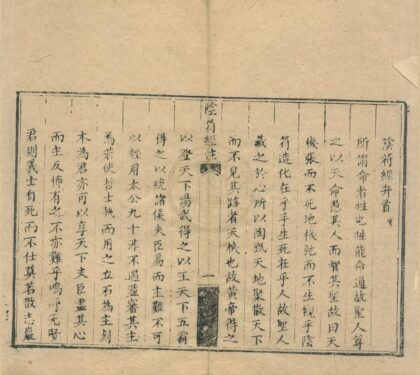 陰符經并首
所謂命者性也性能命通故聖人尊
之以天命愚其人而智其聖故曰天
機張而不死地機弛而不生觀乎陰
符造化在乎手生死在乎人故聖人
藏之於心所以陶甄天地聚散天下
而不見其跡者天機也故黃帝得之
陰符經注
一
以登天下湯武得之以王天下五霸
得之以統諸侯夫臣易而主難不可
以輕用太公九十非不遇蓋審其主
焉若使哲士執而用之立石為主刻
木為君亦可以享天下夫臣盡其心
而主反怖有之不亦難乎嗚呼无賢
君則義士自死而不仕莫若散志巖